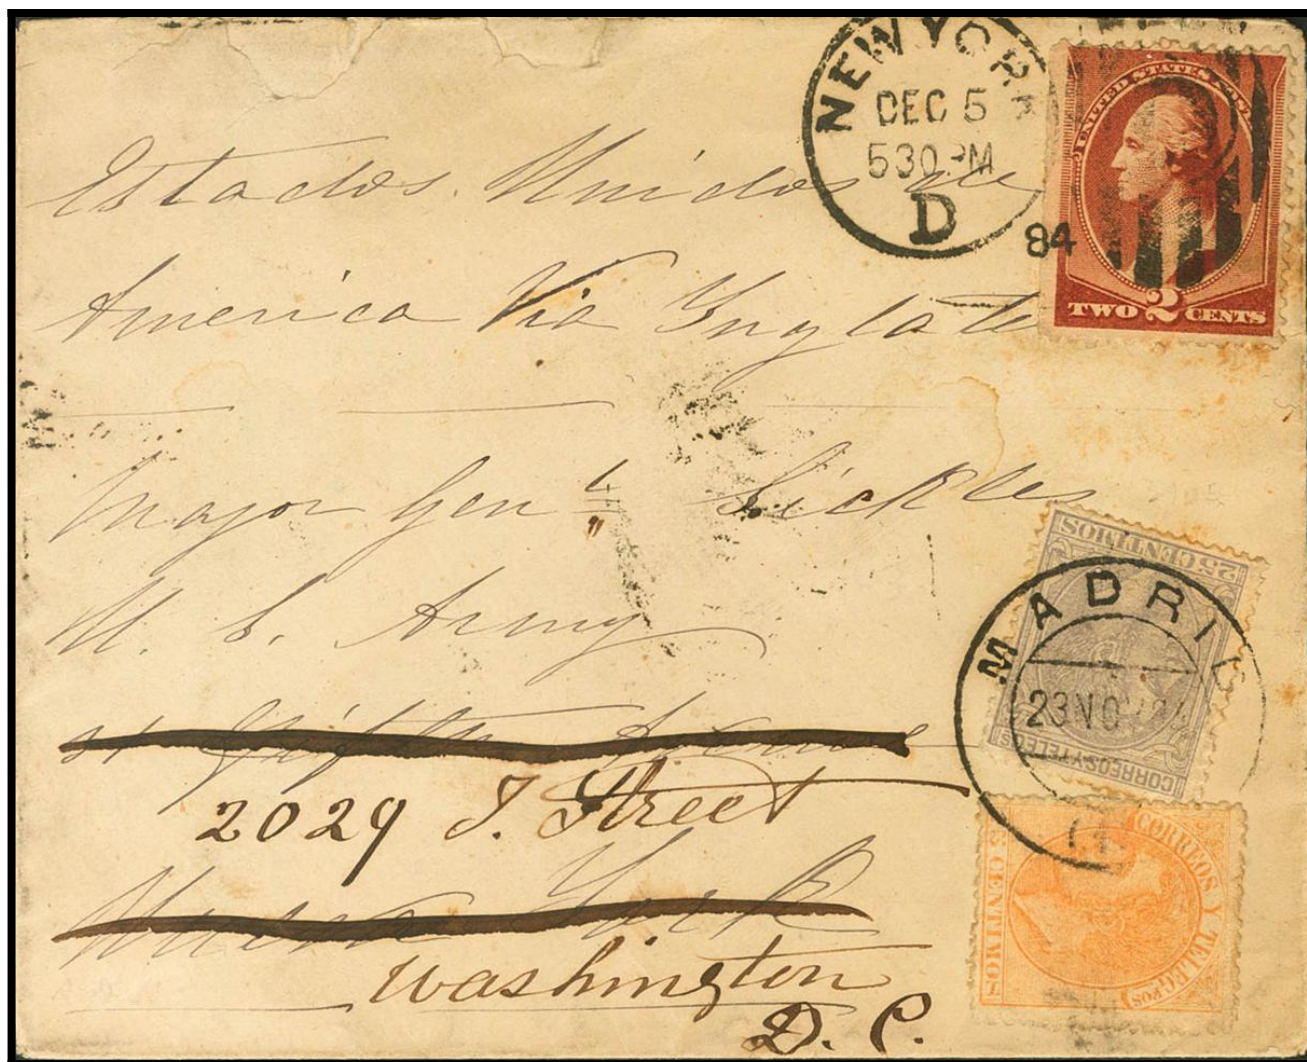 NEW YORK
DEC 5
530 PM
D
84
UNITED STATES
TWO 2 CENTS
Estados Unidos de
America Via Ynglate
Major Gen l Sickles
U. S. Army
Fifth Avenue
2029 I. Street
Nueva York
Washington
D. C.
25 CENTIMOS
MADRID
23 NOV 84
CORREOS Y TELEGS
CORREOS Y TELEGFOS
CENTIMOS